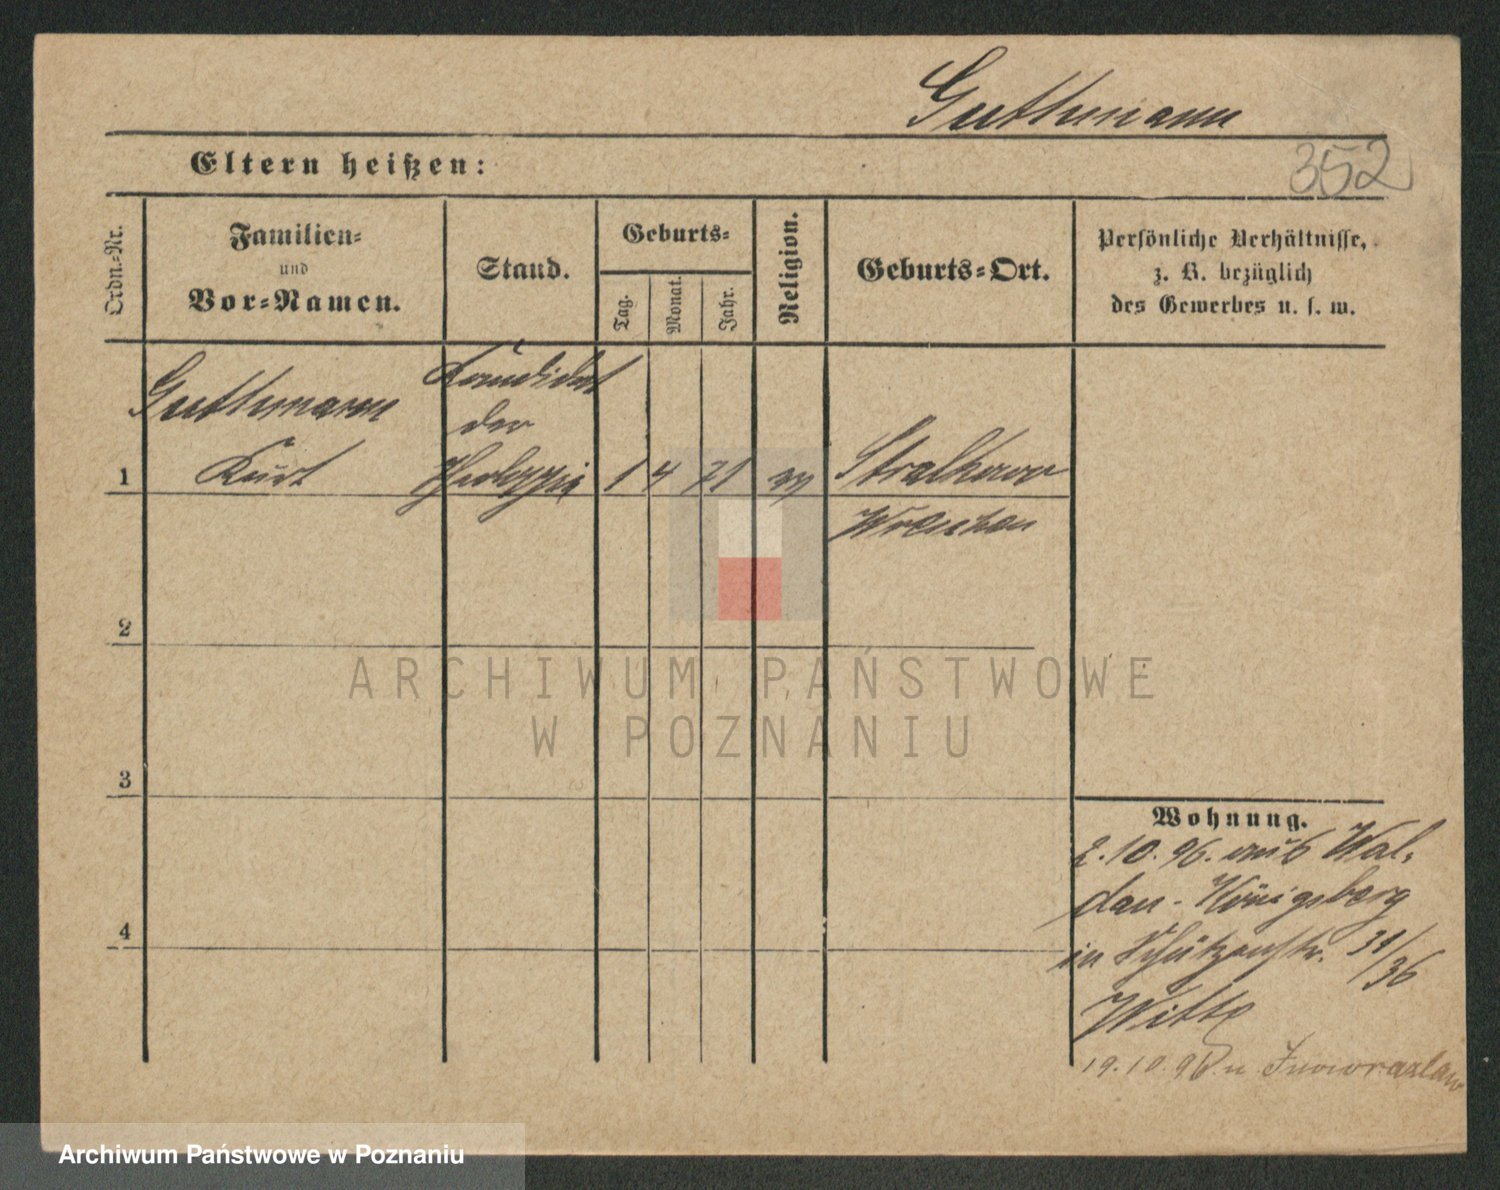 Guthmann
Eltern heißen:
352
Ordn.-Nr.
Familien-
und
Vor-Namen.
Stand.
Geburts-
Tag.
Monat.
Jahr.
Religion.
Geburts-Ort.
Persönliche Verhältnisse,
z. B. bezüglich
des Gewerbes u. s. w.
Guthmann
Kurt
Kandidat
der
Theologie
1
1 4 71 ev
Stralkowo
Wreschen
2
3
4
Wohnung.
2.10.96. aus Wal-
dau-Königsberg
in Schützenstr. 31/36
Witte
19.10.96. n. Inowrazlaw
ARCHIWUM PAŃSTWOWE
W POZNANIU
Archiwum Państwowe w Poznaniu